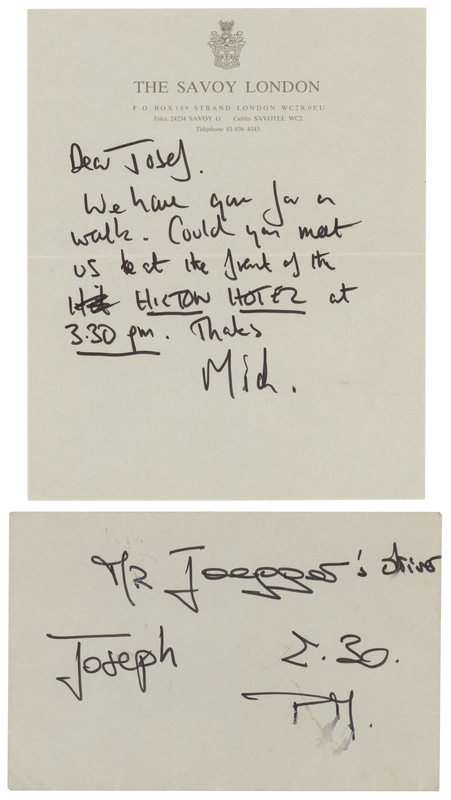 THE SAVOY LONDON
P.O. BOX 189 STRAND LONDON WC2R 0EU
Telex 24234 SAVOY G Cables SAVOTEL WC2
Telephone 01-836 4343
Dear Josef.
We have gone for a
walk. Could you meet
us at the front of the
HILTON HOTEL at
3.30 pm. Thanks
Mick.
Mr Jaegger's driver
Joseph 2.30.
PM.